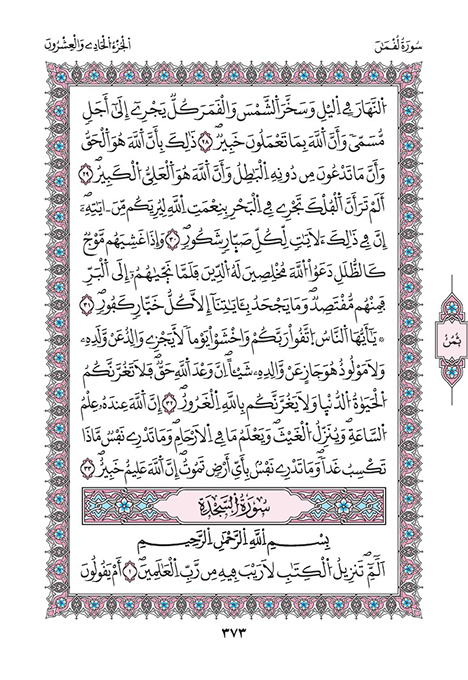 سُورَةُ لُقْمَٰنَ
الْجُزْءُ الْحَادِي وَالْعِشْرُونَ
اَ۬لنَّهَارَ فِے اِ۬ليْلِ وَسَخَّرَ اَ۬لشَّمْسَ وَالْقَمَرَ كُلّٞ يَجْرِےٓ إِلَيٰٓ أَجَلٖ
مُّسَمّيٗ وَأَنَّ اَ۬للَّهَ بِمَا تَعْمَلُونَ خَبِيرٞۖ ٢٨ ذَٰلِكَ بِأَنَّ اَ۬للَّهَ هُوَ اَ۬لْحَقُّ
وَأَنَّ مَا تَدْعُونَ مِن دُونِهِ اِ۬لْبَٰطِلُ وَأَنَّ اَ۬للَّهَ هُوَ اَ۬لْعَلِيُّ اُ۬لْكَبِيرُۖ ٢٩
أَلَمْ تَرَ أَنَّ اَ۬لْفُلْكَ تَجْرِے فِے اِ۬لْبَحْرِ بِنِعْمَتِ اِ۬للَّهِ لِيُرِيَكُم مِّنَ اٰيَٰتِهِۦٓۖ
إِنَّ فِے ذَٰلِكَ ءَلَأيَٰتٖ لِّكُلِّ صَبّارٖ شَكُورٖۖ ٣٠ وَإِذَا غَشِيَهُم مَّوْجٞ
كَالظُّلَلِ دَعَوُاْ اُ۬للَّهَ مُخْلِصِينَ لَهُ اُ۬لدِّينَ فَلَمَّا نَجّيٰهُمُۥٓ إِلَي اَ۬لْبَرِّ
فَمِنْهُم مُّقْتَصِدٞۖ وَمَا يَجْحَدُ بِـَٔايَٰتِنَآ إِلَّا كُلُّ خَبّارٖ كَفُورٖۖ ٣١
۞ يَٰٓأَيُّهَا اَ۬لنَّاسُ اُ۪تَّقُواْ رَبَّكُمْ وَاخْشَوْاْ يَوْماٗ لَّا يَجْزِے وَالِدٌ عَنْ وَّلَدِهِۦ
وَلَا مَوْلُودٌ هُوَ جَازٍ عَنْ وَّالِدِهِۦ شَيْـٔاًۖ اِنَّ وَعْدَ اَ۬للَّهِ حَقّٞۖ فَلَا تَغُرَّنَّكُمُ
اُ۬لْحَيَوٰةُ اُ۬لدُّنْي۪ا وَلَا يَغُرَّنَّكُم بِاللَّهِ اِ۬لْغَرُورُۖ ٣٢ إِنَّ اَ۬للَّهَ عِندَهُۥ عِلْمُ
اُ۬لسَّاعَةِۖ وَيُنَزِّلُ اُ۬لْغَيْثَۖ وَيَعْلَمُ مَا فِے اِ۬لَارْحَامِۖ وَمَا تَدْرِے نَفْسٞ مَّاذَا
تَكْسِبُ غَداٗۖ وَمَا تَدْرِے نَفْسُۢ بِأَيِّ أَرْضٖ تَمُوتُۖ إِنَّ اَ۬للَّهَ عَلِيمٌ خَبِيرٞۖ ٣٣
ثُمُنْ
سُورَةُ اُ۬لسَّجْدَةِ
بِسْمِ اِ۬للَّهِ اِ۬لرَّحْمَٰنِ اِ۬لرَّحِيمِ
أَلَٓمِّٓۖ تَنزِيلُ اُ۬لْكِتَٰبِ لَا رَيْبَ فِيهِ مِن رَّبِّ اِ۬لْعَٰلَمِينَۖ ١ أَمْ يَقُولُونَ
٣٧٣